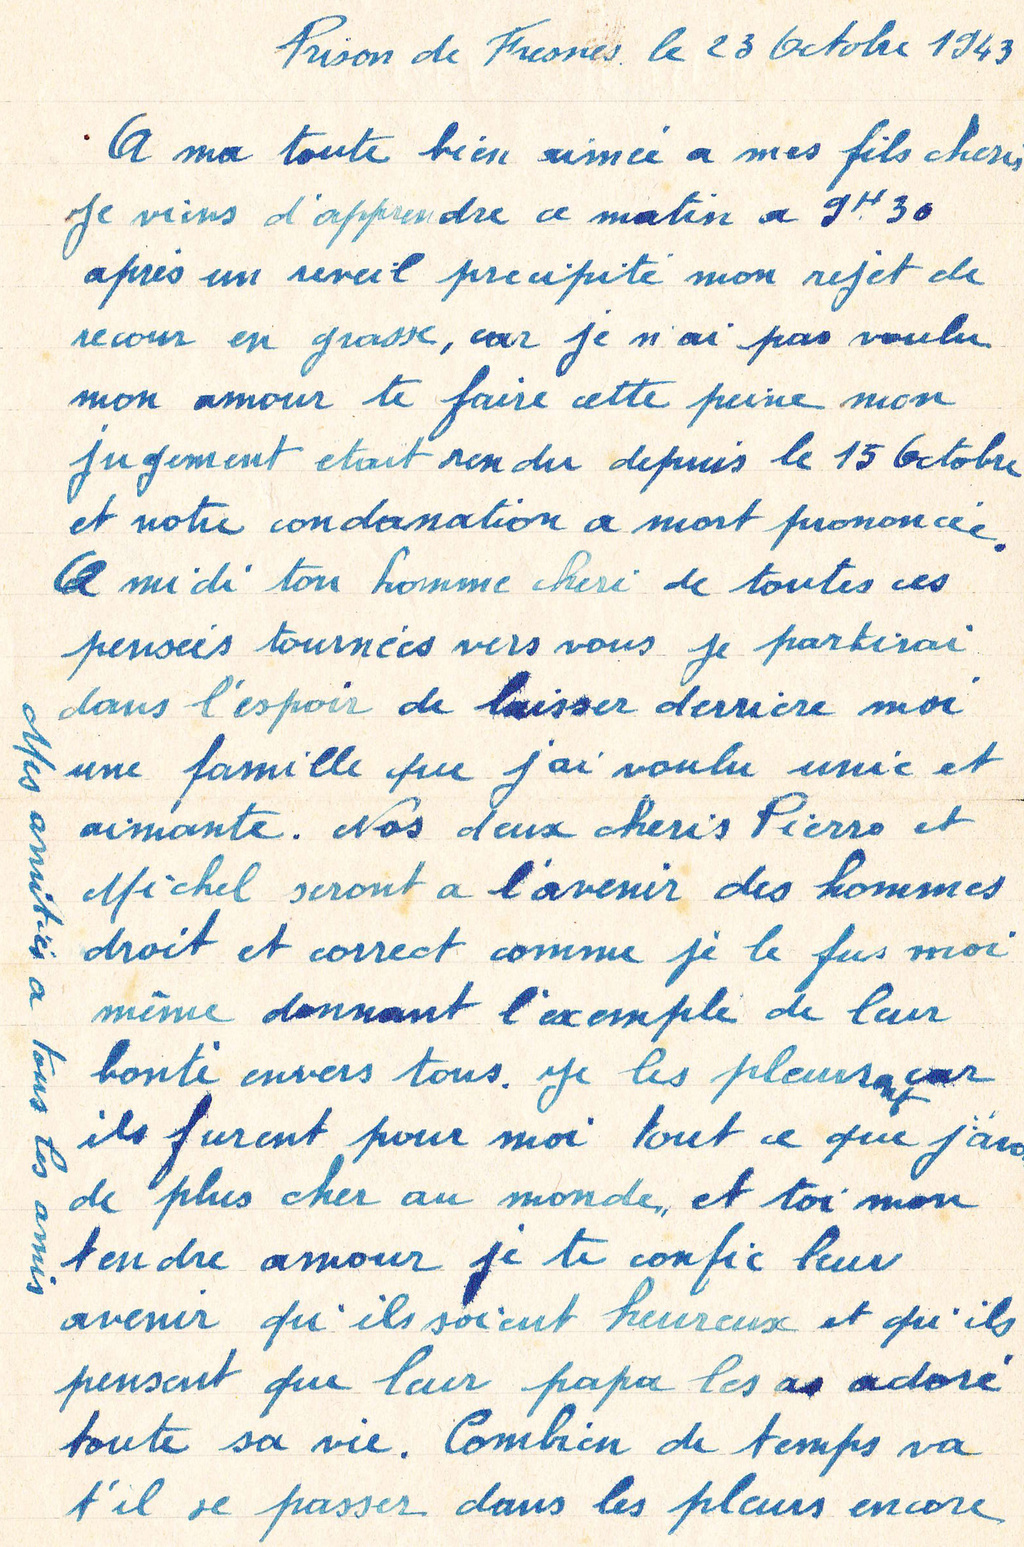 Prison de Fresnes. le 23 Octobre 1943
A ma toute bien aimée a mes fils cheris
Je viens d'apprendre ce matin a 9H30
après un reveil precipité mon rejet de
recour en grasse, car je n'ai pas voulu
mon amour te faire cette peine mon
jugement etait rendu depuis le 15 Octobre
et notre condanation a mort prononcée.
A midi ton homme cheri de toutes ces
penseés tournées vers vous je partirai
dans l'espoir de laisser derriere moi
une famille que j'ai voulu unie et
aimante. Nos deux cheris Pierro et
Michel seront a l'avenir des hommes
droit et correct comme je le fus moi
même donnant l'exemple de leur
bonté envers tous. Je les pleurs car
ils furent pour moi tout ce que j'avo
de plus cher au monde, et toi mon
tendre amour je te confie leur
avenir qu'ils soient heureux et qu'ils
pensent que leur papa les as adoré
toute sa vie. Combien de temps va
t'il se passer dans les pleurs encore
Mes amitiés a tous les amis